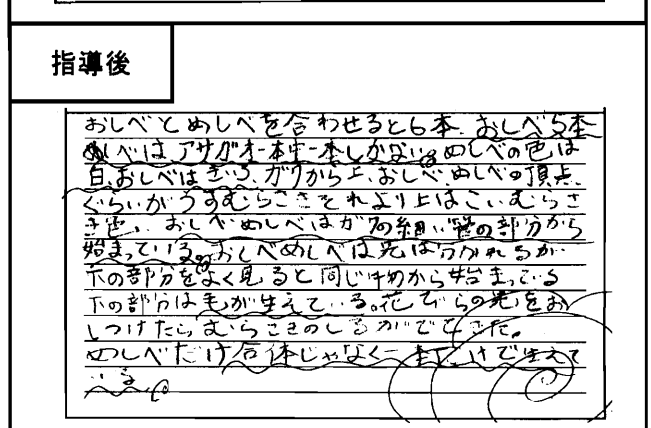 指導後
おしべとめしべを合わせると6本、おしべ5本
めしべはアサガオ一本中一本しかない。めしべの色は
白、おしべはきいろ、ガクから上、おしべ、めしべの頂点
ぐらいがうすむらさきそれより上はこいむらさ
き色。おしべめしべはがくの細い管の部分から
始まっている。おしべめしべは先は分かれるが
下の部分をよく見ると同じ所から始まっている
下の部分は毛が生えている。花びらの先をお
しつけたらむらさきのしるがでてきた。
めしべだけ合体じゃなく一本だけで生えて
いる。